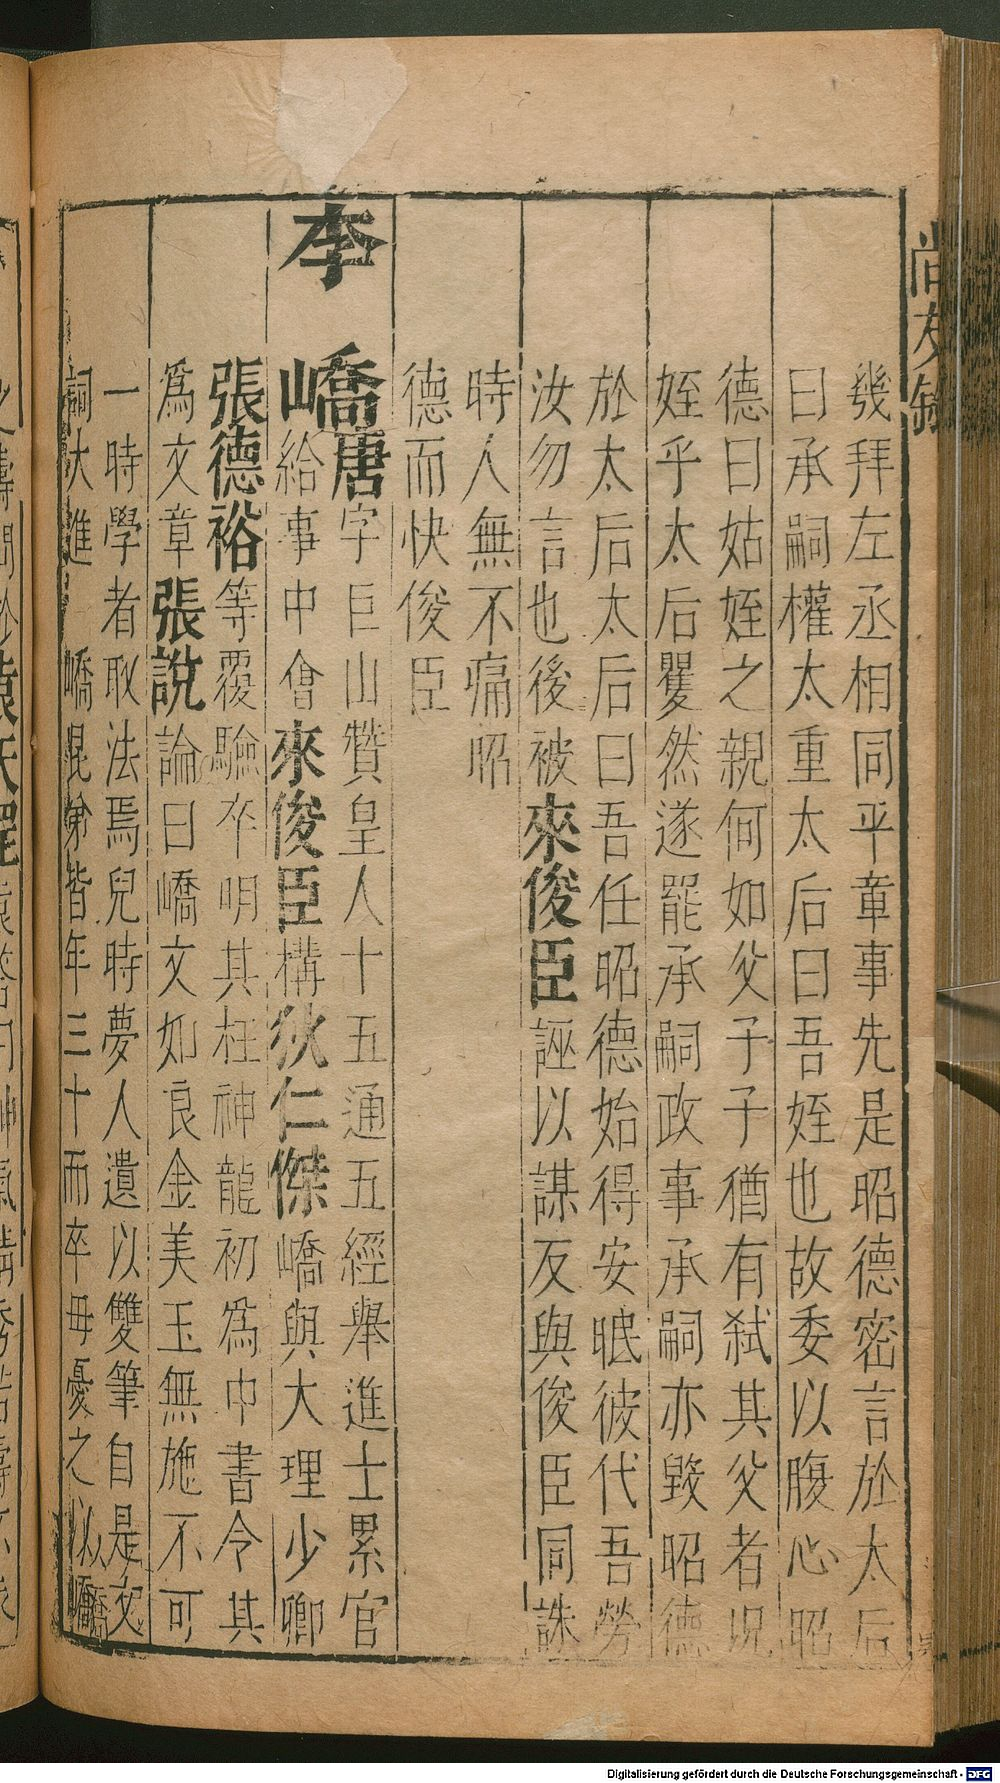 尚友錄
幾拜左丞相同平章事先是昭德密言於太后
曰承嗣權太重太后曰吾姪也故委以腹心昭
德曰姑姪之親何如父子子猶有弒其父者況
姪乎太后矍然遂罷承嗣政事承嗣亦毀昭德
於太后太后曰吾任昭德始得安眠彼代吾勞
汝勿言也後被來俊臣誣以謀反與俊臣同誅
時人無不痛昭
德而快俊臣
李嶠唐字巨山贊皇人十五通五經舉進士累官
給事中會來俊臣構狄仁傑嶠與大理少卿
張德裕等覆驗卒明其枉神龍初為中書令其
為文章張說論曰嶠文如良金美玉無施不可
一時學者取法焉兒時夢人遺以雙筆自是文
詞大進 嶠昆弟皆年三十而卒母憂之以嶠
Digitalisierung gefördert durch die Deutsche Forschungsgemeinschaft - DFG